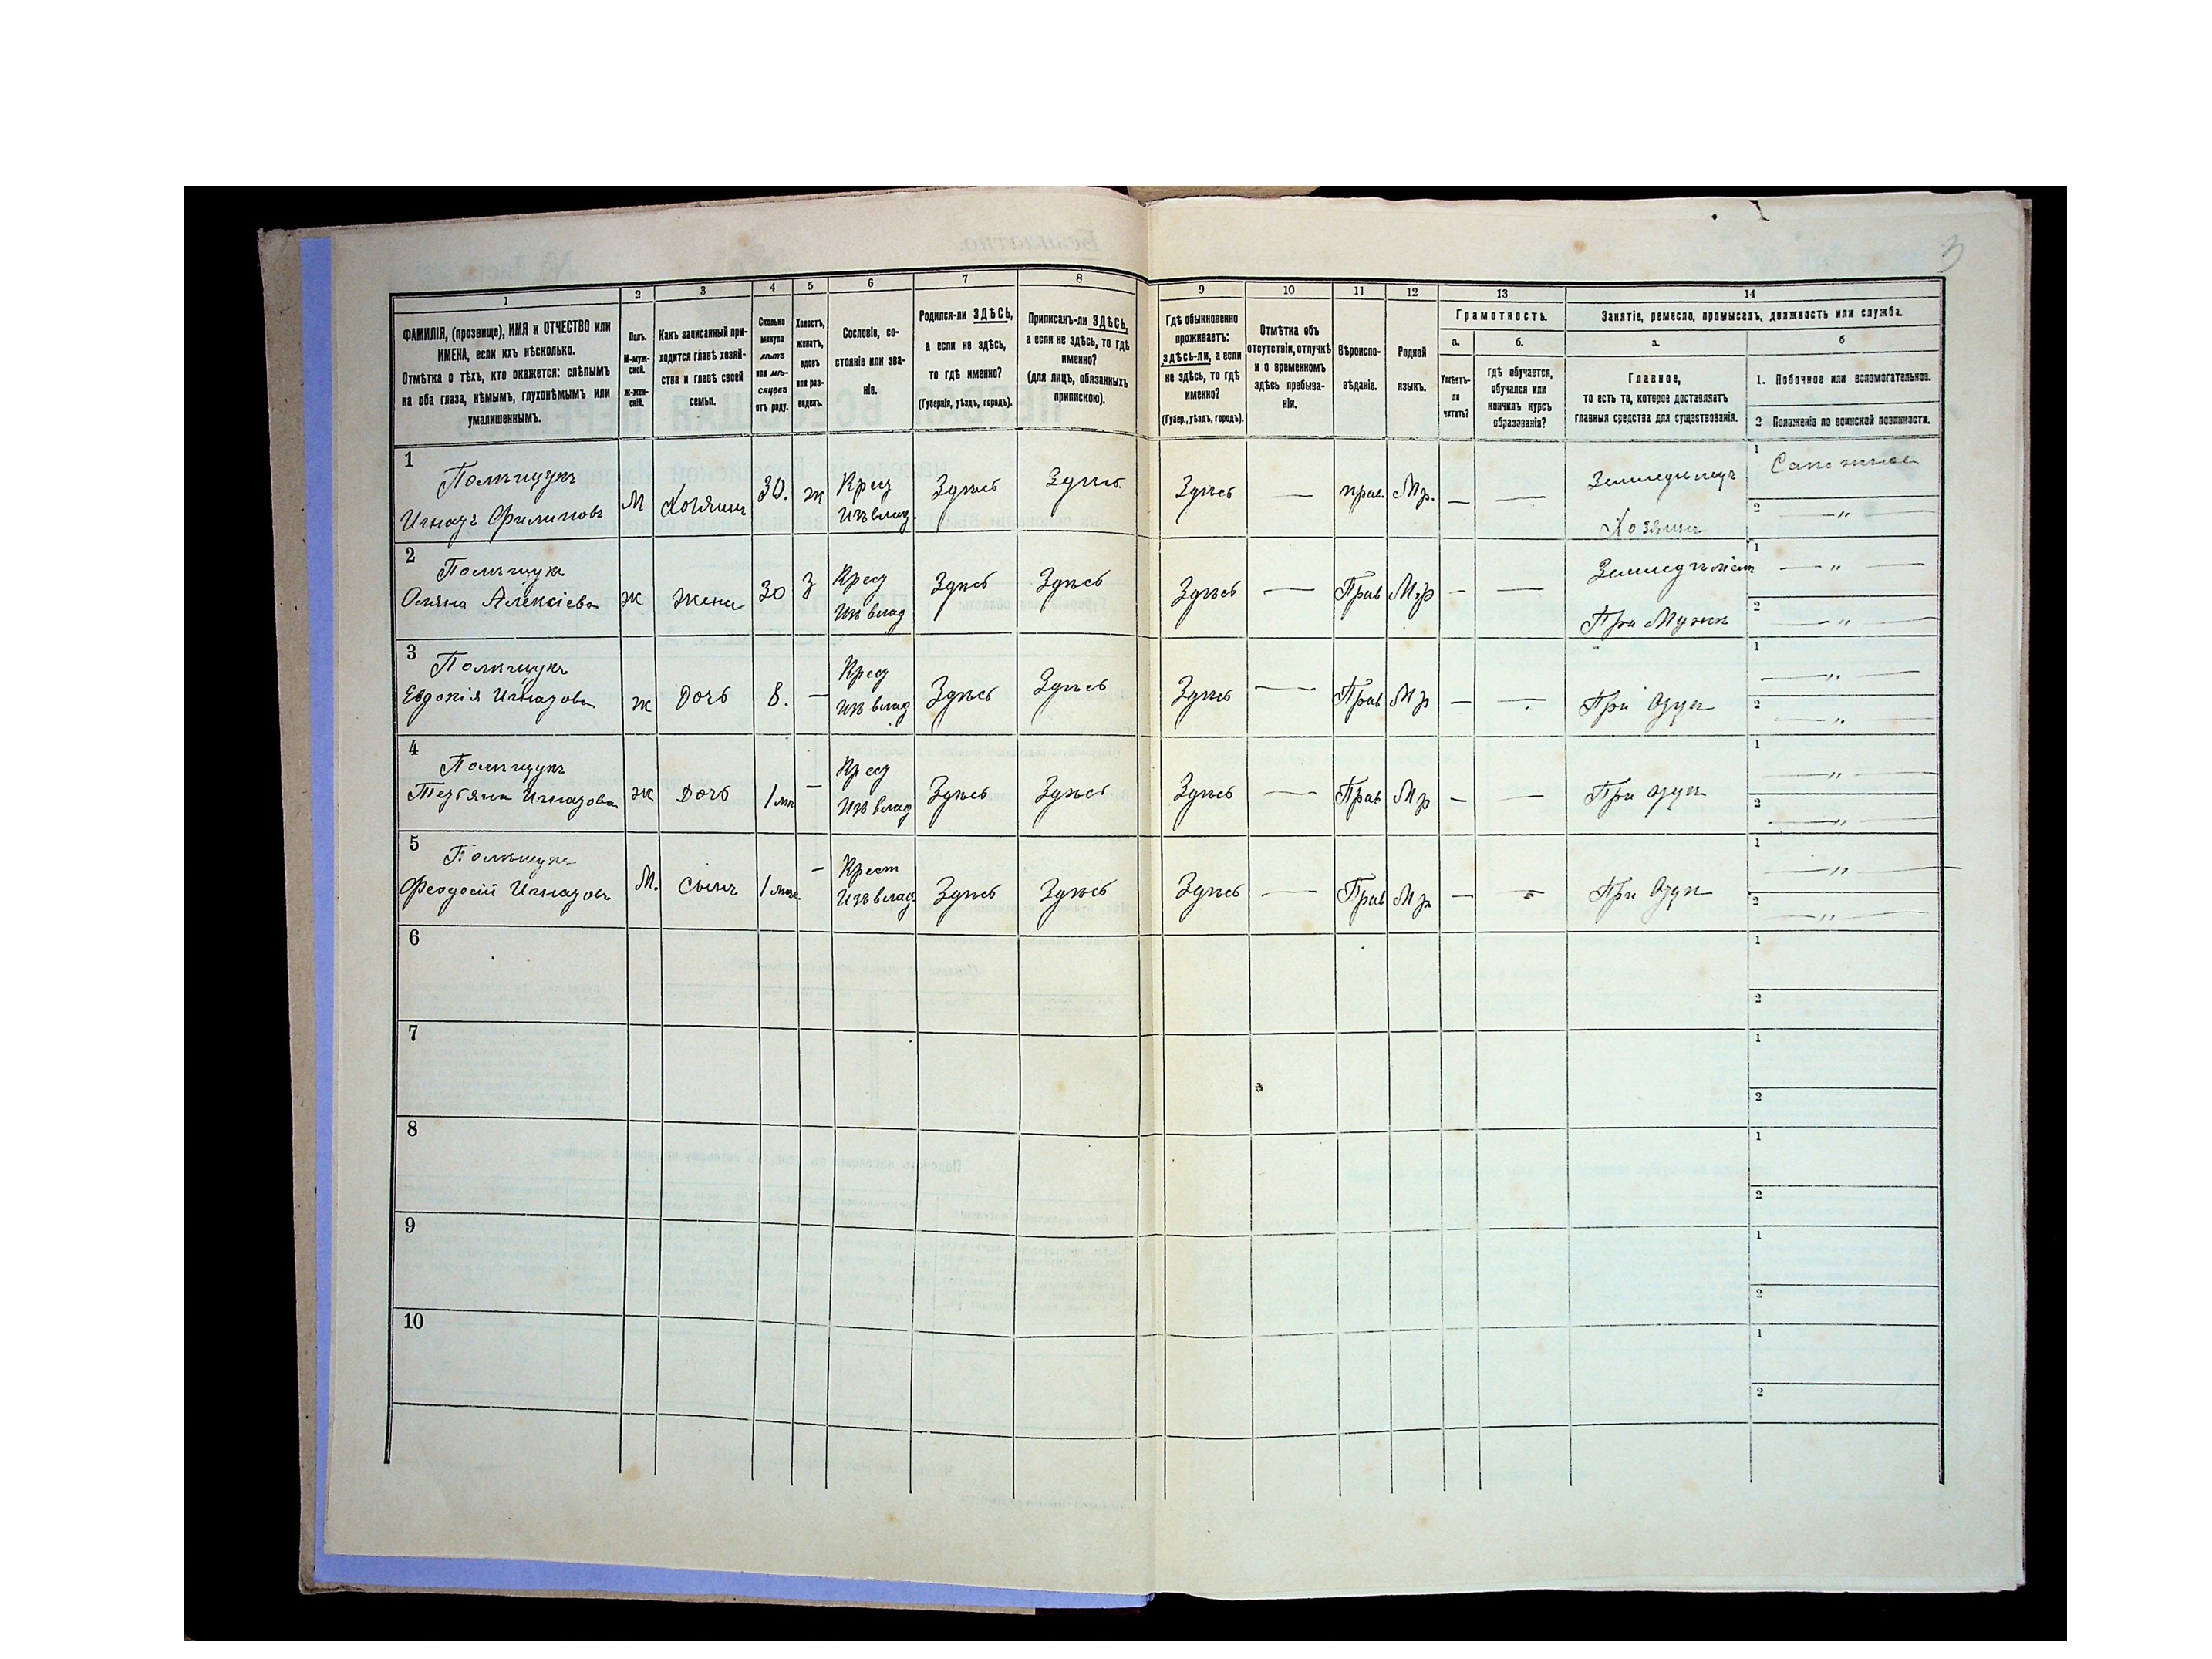 3
1
2
3
4
5
6
7
8
9
10
11
12
13
14
ФАМИЛІЯ, (прозвище), ИМЯ и ОТЧЕСТВО или
ИМЕНА, если ихъ нѣсколько.
Отмѣтка о тѣхъ, кто окажется: слѣпымъ
на оба глаза, нѣмымъ, глухонѣмымъ или
умалишеннымъ.
Полъ.
М-муж-
ской.
Ж-жен-
скій.
Какъ записанный при-
ходится главѣ хозяй-
ства и главѣ своей
семьи.
Сколько
минуло
лѣтъ
или мѣ-
сяцевъ
отъ роду.
Холостъ,
женатъ,
вдовъ
или раз-
веденъ.
Сословіе, со-
стояніе или зва-
ніе.
Родился-ли ЗДѢСЬ,
а если не здѣсь,
то гдѣ именно?
(Губернія, уѣздъ, городъ).
Приписанъ-ли ЗДѢСЬ,
а если не здѣсь, то гдѣ
именно?
(для лицъ, обязанныхъ
припискою).
Гдѣ обыкновенно
проживаетъ:
здѣсь-ли, а если
не здѣсь, то гдѣ
именно?
(Губер., уѣздъ, городъ).
Отмѣтка объ
отсутствіи, отлучкѣ
и о временномъ
здѣсь пребыва-
ніи.
Вѣроиспо-
вѣданіе.
Родной
языкъ.
Грамотность.
а.
Умѣетъ-
ли
читать?
б.
гдѣ обучается,
обучался или
кончилъ курсъ
образованія?
Занятіе, ремесло, промыселъ, должность или служба.
а.
Главное,
то есть то, которое доставляетъ
главныя средства для существованія.
б
1. Побочное или вспомогательное.
2 Положеніе по воинской повинности.
1
Полѣщукъ
Игнатъ Филиповъ
М
Хозяинъ
30.
ж
Крест
Изъ влад.
Здѣсь
Здѣсь
Здѣсь
—
прав.
Мр.
—
—
Земледѣлецъ
Хозяин
1
Сапожное
2
— " —
2
Полѣщукъ
Олѣна Алексіева
ж
Жена
30
З
Крест
Изъ влад
Здѣсь
Здѣсь
Здѣсь
—
Прав
Мр
—
—
Земледѣліемъ
При Мужѣ
1
— " —
2
— " —
3
Полѣщукъ
Евдокія Игнатова
ж
Дочь
8.
—
Крест
Изъ влад
Здѣсь
Здѣсь
Здѣсь
—
Прав
Мр
—
—
При Отцѣ
1
— " —
2
— " —
4
Полѣщукъ
Тетяна Игнатова
ж
Дочь
—
Крест
Изъ влад
Здѣсь
Здѣсь
Здѣсь
—
Прав
Мр
—
—
При отцѣ
1
— " —
2
— " —
5
Полѣщукъ
Феодосій Игнатовъ
М.
Сынъ
—
Крест
Изъ влад.
Здѣсь
Здѣсь
Здѣсь
—
Прав
Мр
—
—
При Отцѣ
1
— " —
2
— " —
6
1
2
7
1
2
8
1
2
9
1
2
10
1
2